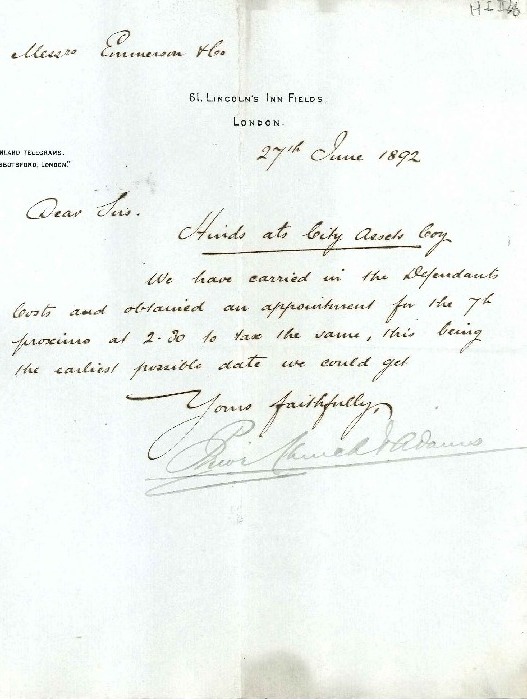 H I D 46
Messrs Emmerson & Co
61, LINCOLN'S INN FIELDS.
LONDON.
NLAND TELEGRAMS.
BBOTSFORD, LONDON."
27th June 1892
Dear Sirs.
Hinds ats City Assets Coy
We have carried in the Defendants
Costs and obtained an appointment for the 7th
proximo at 2-30 to tax the same, this being
the earliest possible date we could get
Yours faithfully,
Prior Church & Adams